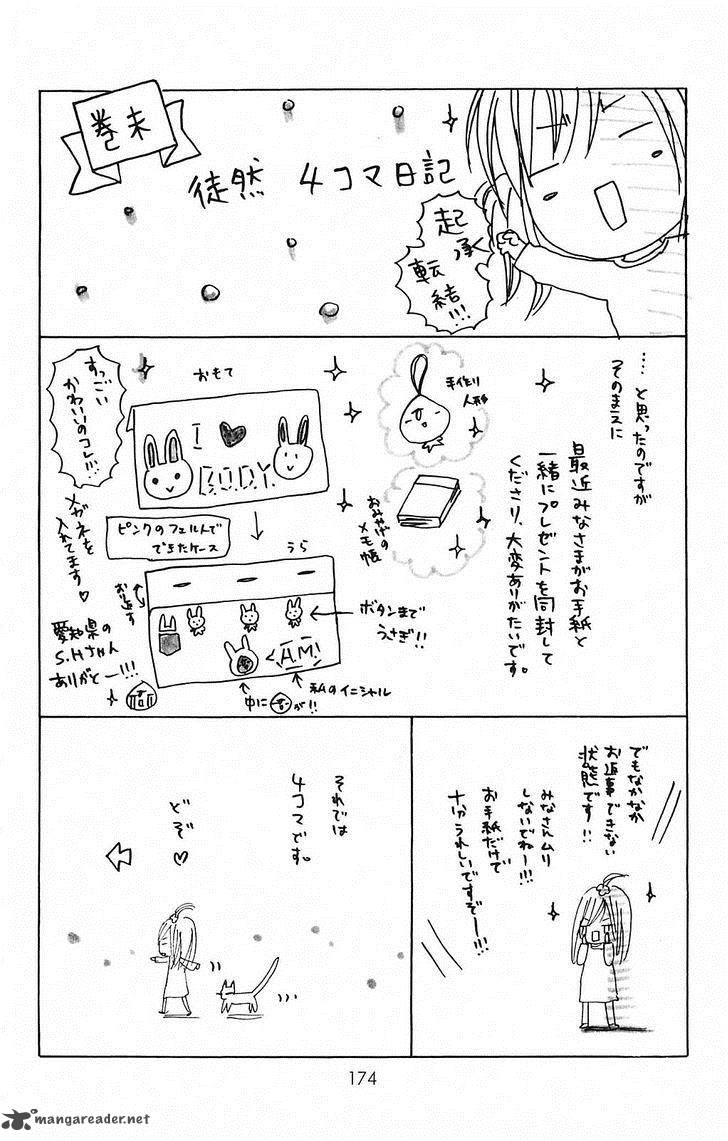 巻末
徒然 4コマ日記
起
承
転
結!!!
……と思ったのですが
そのまえに
最近みなさまがお手紙と
一緒にプレゼントを同封して
くださり、大変ありがたいです。
手作り
人形
おみやげの
メモ帳
おもて
I ♥
B.O.D.Y.
すっごい
かわいいのコレ!!!
メガネを
入れてます♡
ピンクのフェルトで
できたケース
うら
お返す
ボタンまで
うさぎ!!
A.M!
私のイニシャル
中に
が!!
愛知県の
S.Hちゃん
ありがとー!!!
でもなかなか
お返事できない
状態です!!
みなさんムリ
しないでねー!!!
お手紙だけで
十分うれしいですぞー!!!
それでは
4コマです。
どぞ♡
174
mangareader.net